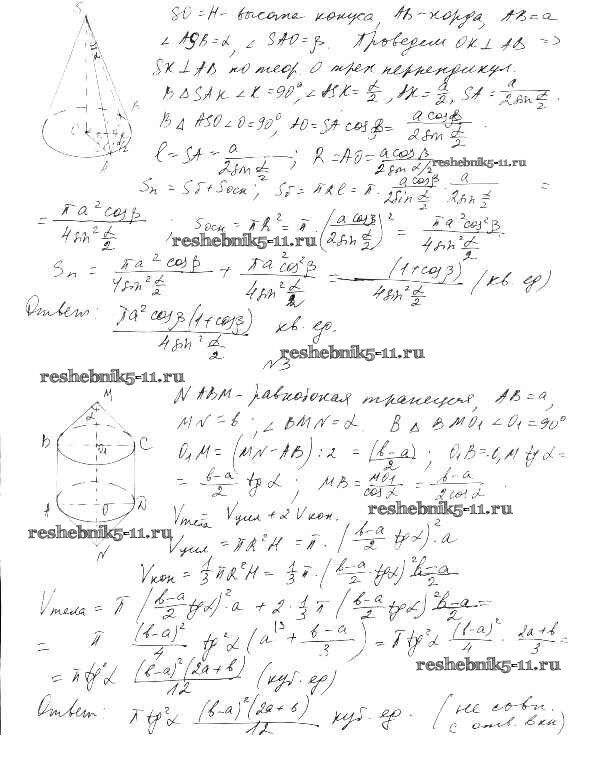 SO = H - высота конуса, AB - хорда, AB = a
∠ASB = α, ∠SAO = β. Проведем OK ⊥ AB =>
SK ⊥ AB по теор. о трех перпендикул.
В △SAK ∠K = 90°, ∠ASK = α/2, AK = a/2, SA = a/(2sin α/2).
В △ASO ∠O = 90°, AO = SA cosβ = a cosβ/(2sin α/2)
l = SA = a/(2sin α/2); R = AO = a cosβ/(2sin α/2)
reshebnik5-11.ru
Sп = Sб + Sосн; Sб = πRl = π · a cosβ/(2sin α/2) · a/(2sin α/2) =
= πa² cosβ/(4sin² α/2); Sосн = πR² = π · (a cosβ/(2sin α/2))² = πa² cos²β/(4sin² α/2)
reshebnik5-11.ru
Sп = πa² cosβ/(4sin² α/2) + πa² cos²β/(4sin² α/2) = (1+cosβ)/(4sin² α/2) (кв. ед)
Ответ: πa² cosβ(1+cosβ)/(4sin² α/2) кв. ед.
reshebnik5-11.ru
N3
reshebnik5-11.ru
NABM - равнобокая трапеция, AB = a,
MN = b; ∠BMN = α. В △BMO₁ ∠O₁ = 90°
O₁M = (MN - AB) : 2 = (b-a)/2; O₁B = O₁M tgα =
= (b-a)/2 tgα; MB = MO₁/cosα = (b-a)/(2cosα).
reshebnik5-11.ru
Vтела = Vцил + 2Vкон.
reshebnik5-11.ru
Vцил = πR²H = π · ((b-a)/2 tgα)² · a
Vкон = 1/3 πR²H = 1/3 π · ((b-a)/2 tgα)² (b-a)/2
Vтела = π ((b-a)/2 tgα)² · a + 2 · 1/3 π ((b-a)/2 tgα)² (b-a)/2 =
= π (b-a)²/4 tg²α (a^{13} + (b-a)/3) = π tg²α (b-a)²/4 · (2a+b)/3 =
reshebnik5-11.ru
= π tg²α (b-a)²(2a+b)/12 (куб. ед)
Ответ: π tg²α (b-a)²(2a+b)/12 куб. ед. (не совп.
с отв. в кн)
S
α
O
A
B
K
M
α
B
O₁
C
A
O
D
N